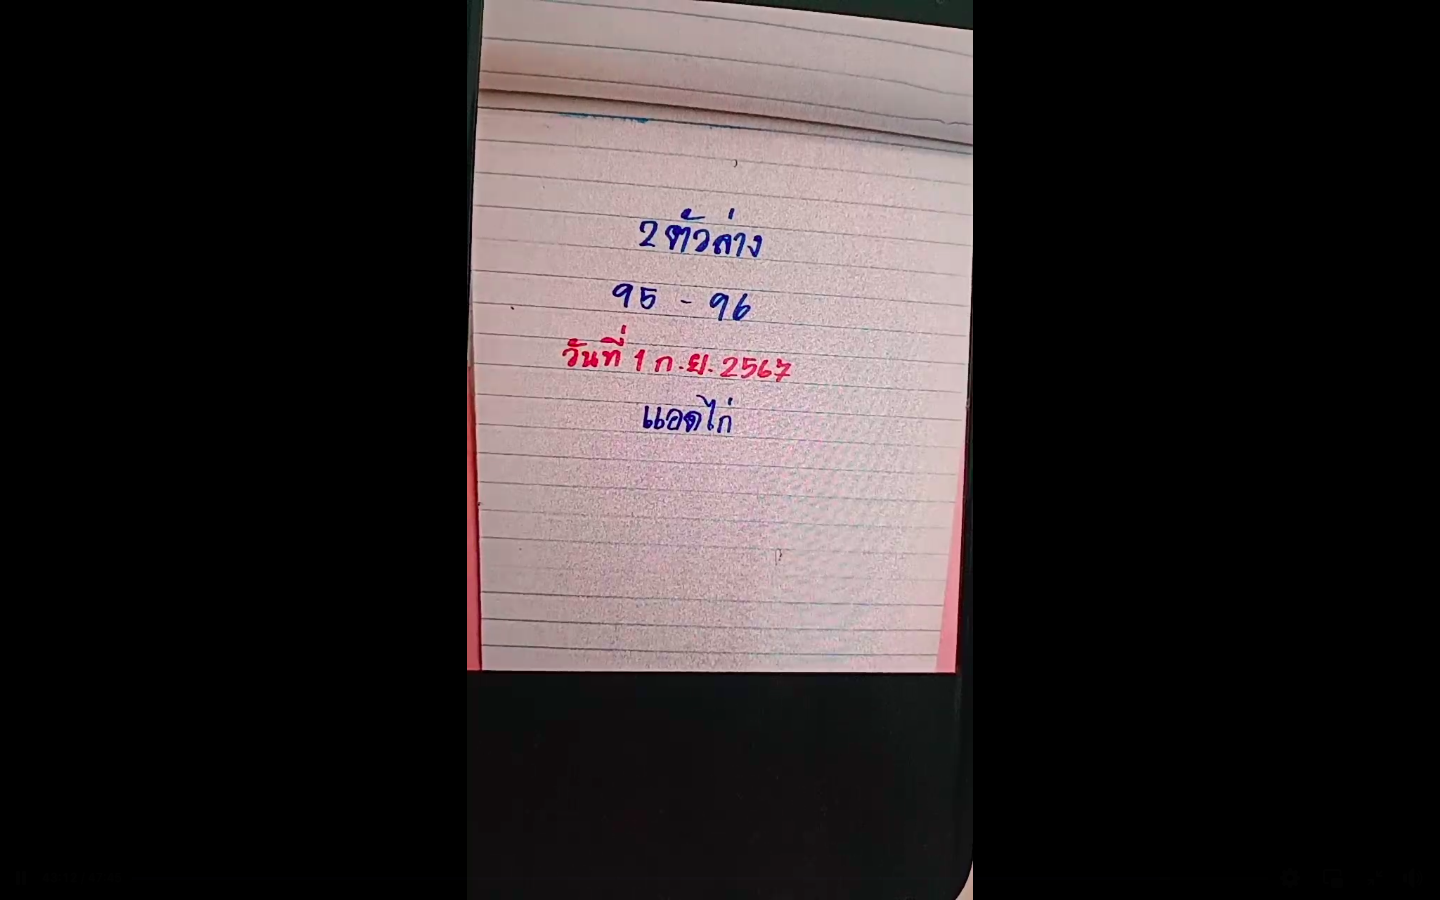 2ตัวล่าง
95 - 96
วันที่ 1 ก.ย. 2567
แอดไก่